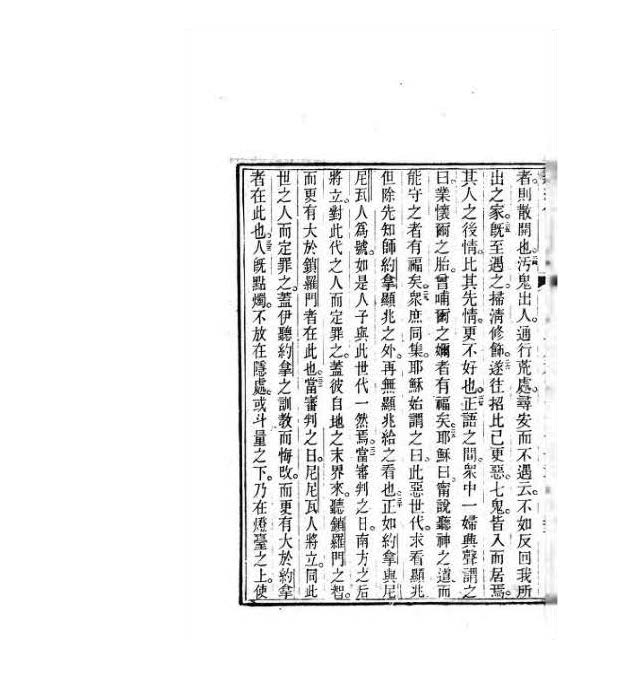 者則散開也汚鬼出人通行荒處尋安而不遇云不如反回我所
出之家旣至遇之掃淸修飾遂往招比己更惡七鬼皆入而居焉
其人之後情比其先情更不好也正語之間衆中一婦興聲謂之
曰業懷爾之胎曾哺爾之嬭者有福矣耶穌曰甯說聽神之道而
能守之者有福矣衆庶同集耶穌始謂之曰此惡世代求看顯兆
但除先知師約拿顯兆之外再無顯兆給之看也正如約拿與尼
尼瓦人爲號如是人子與此世代一然焉當審判之日南方之后
將立對此代之人而定罪之蓋彼自地之末界來聽鎖羅門之智
而更有大於鎖羅門者在此也當審判之日尼尼瓦人將立同此
世之人而定罪之蓋伊聽約拿之訓教而悔改而更有大於約拿
者在此也人旣點燭不放在隱處或斗量之下乃在燈臺之上使